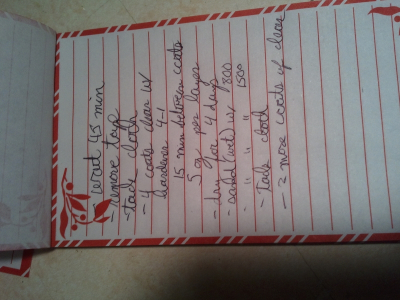 - wait 45 min
- remove tape
- tack cloth
- 4 coats clear w/
hardener 4-1
15 min between coats
5 oz per layer
- dry for 4 days
- sand (wet) w/ 800
" " " 1500
- tack cloth
- 2 more coats of clear